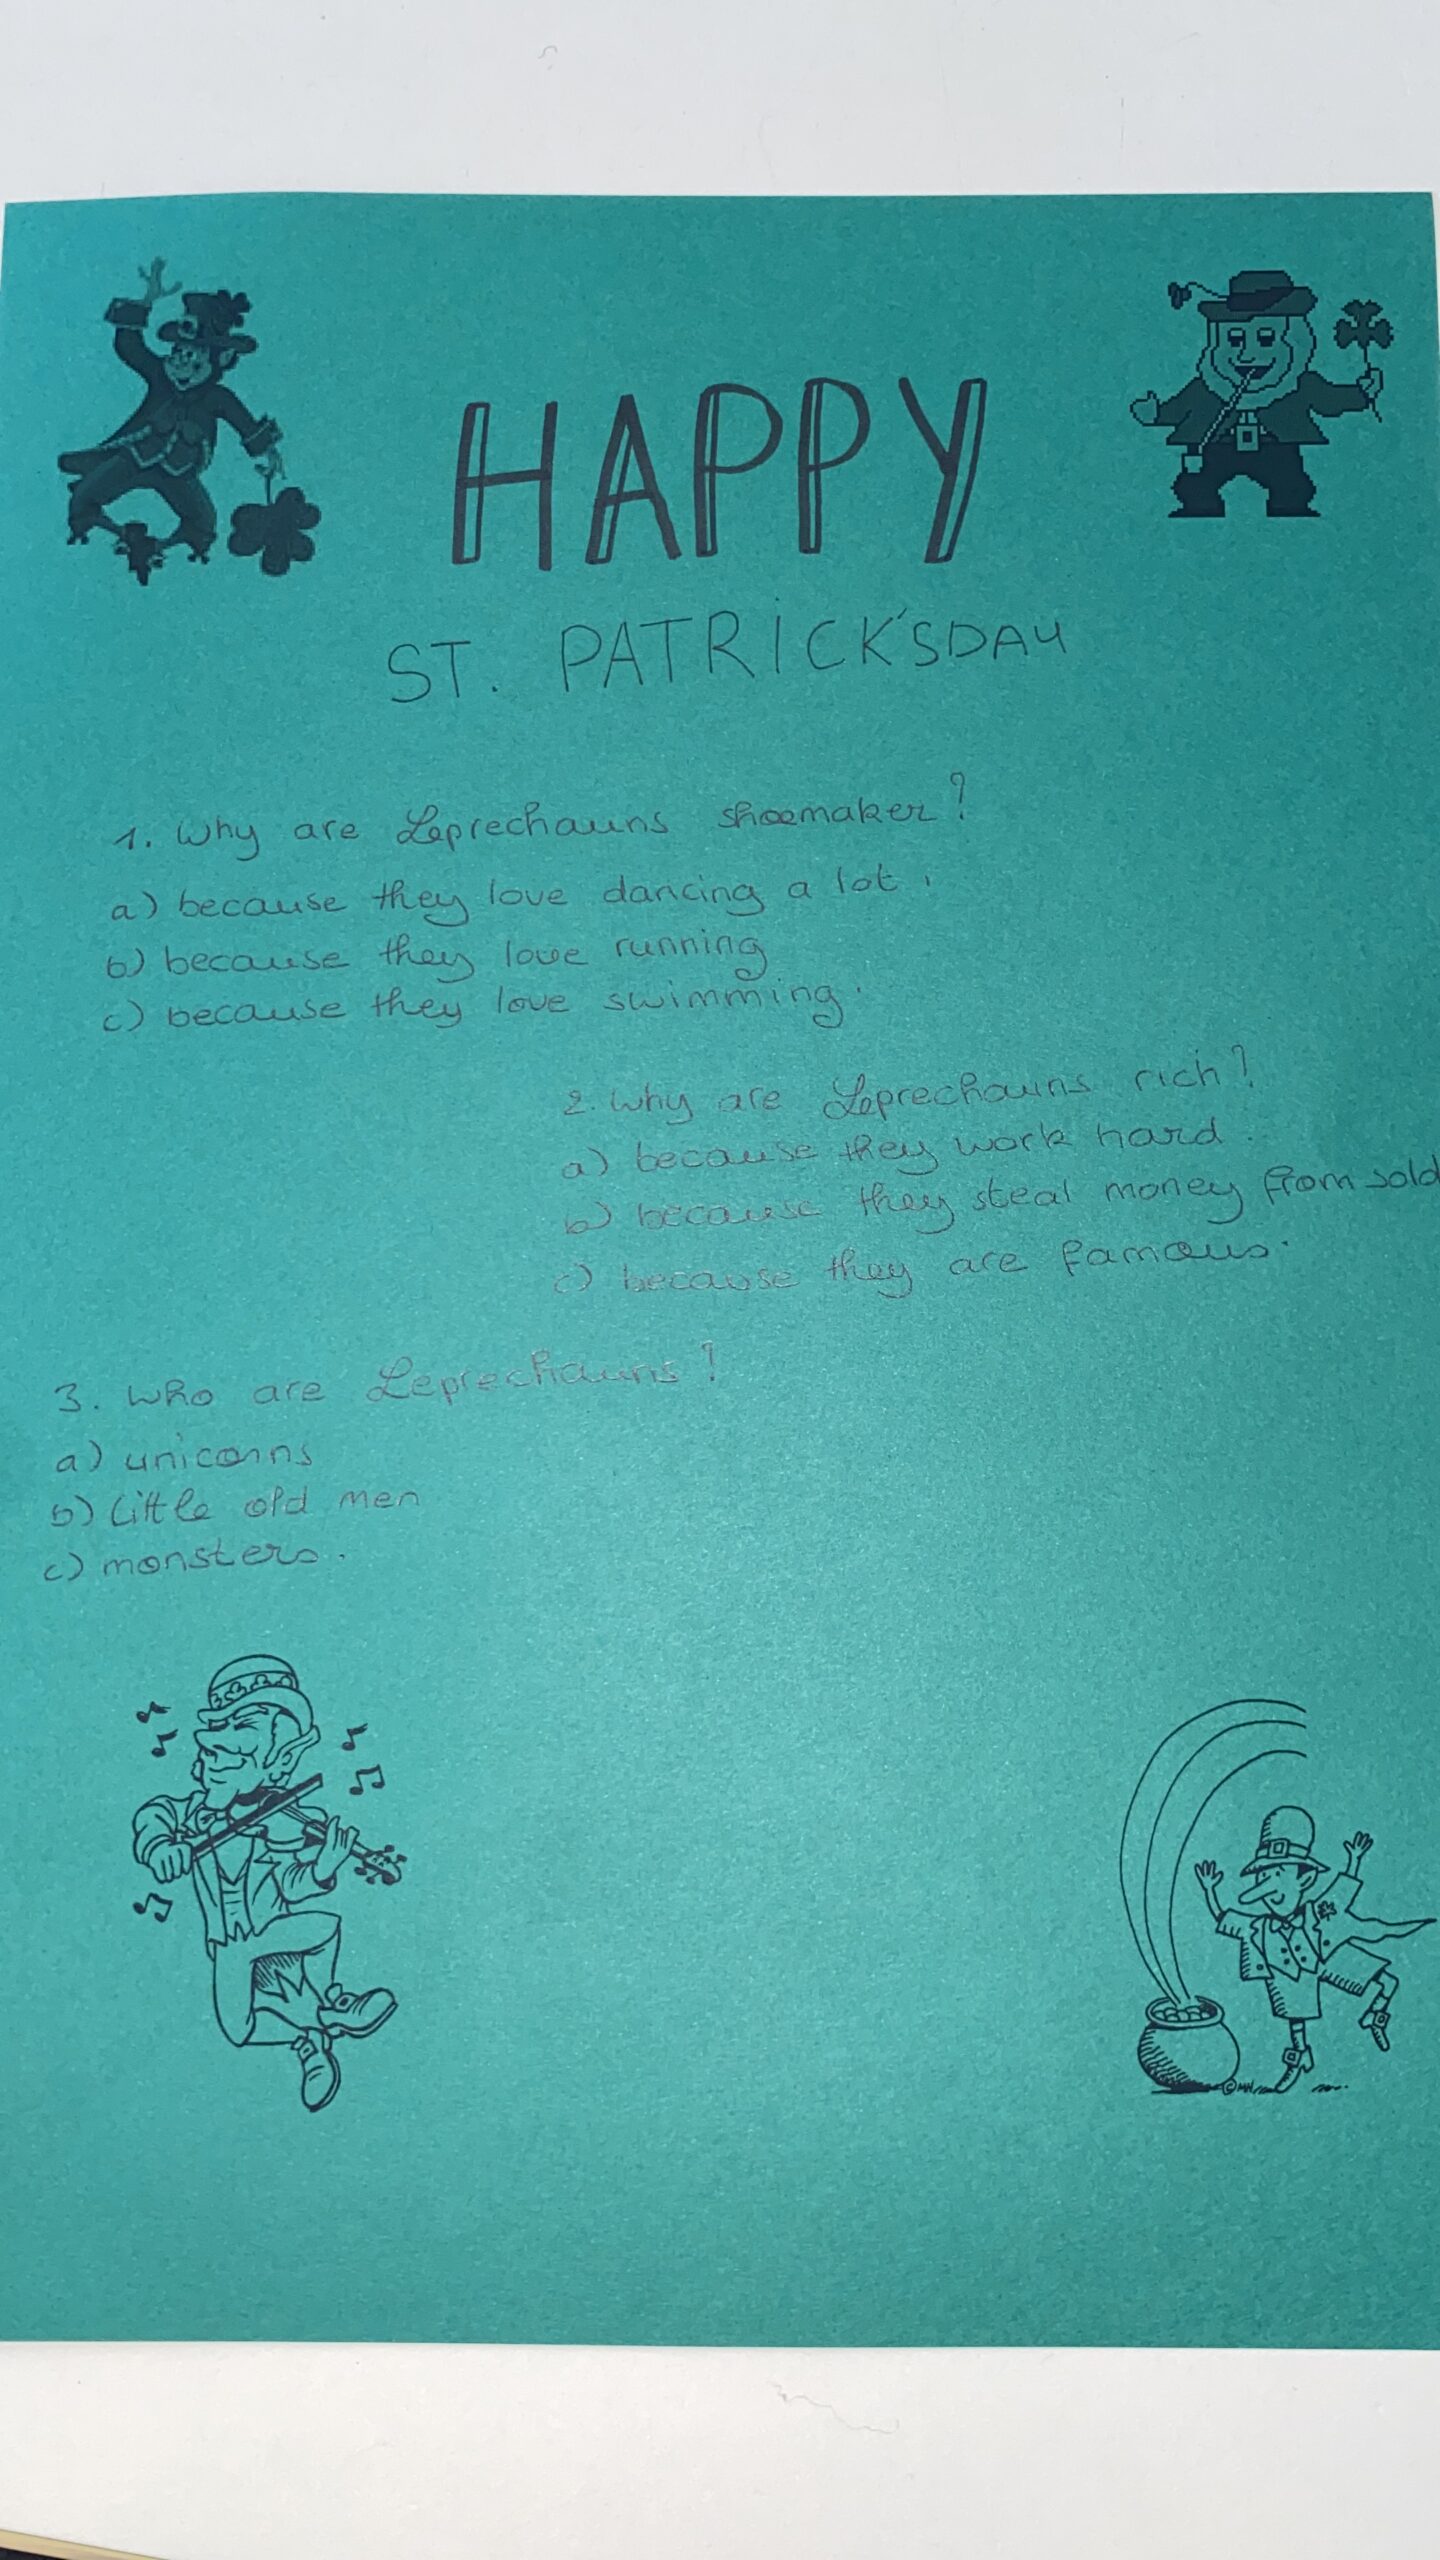 HAPPY
ST. PATRICK'S DAY
1. Why are Leprechauns shoemaker?
a) because they love dancing a lot.
b) because they love running
c) because they love swimming.
2. Why are Leprechauns rich?
a) because they work hard.
b) because they steal money from sold
c) because they are famous.
3. Who are Leprechauns?
a) unicorns
b) little old men
c) monsters.
©MW